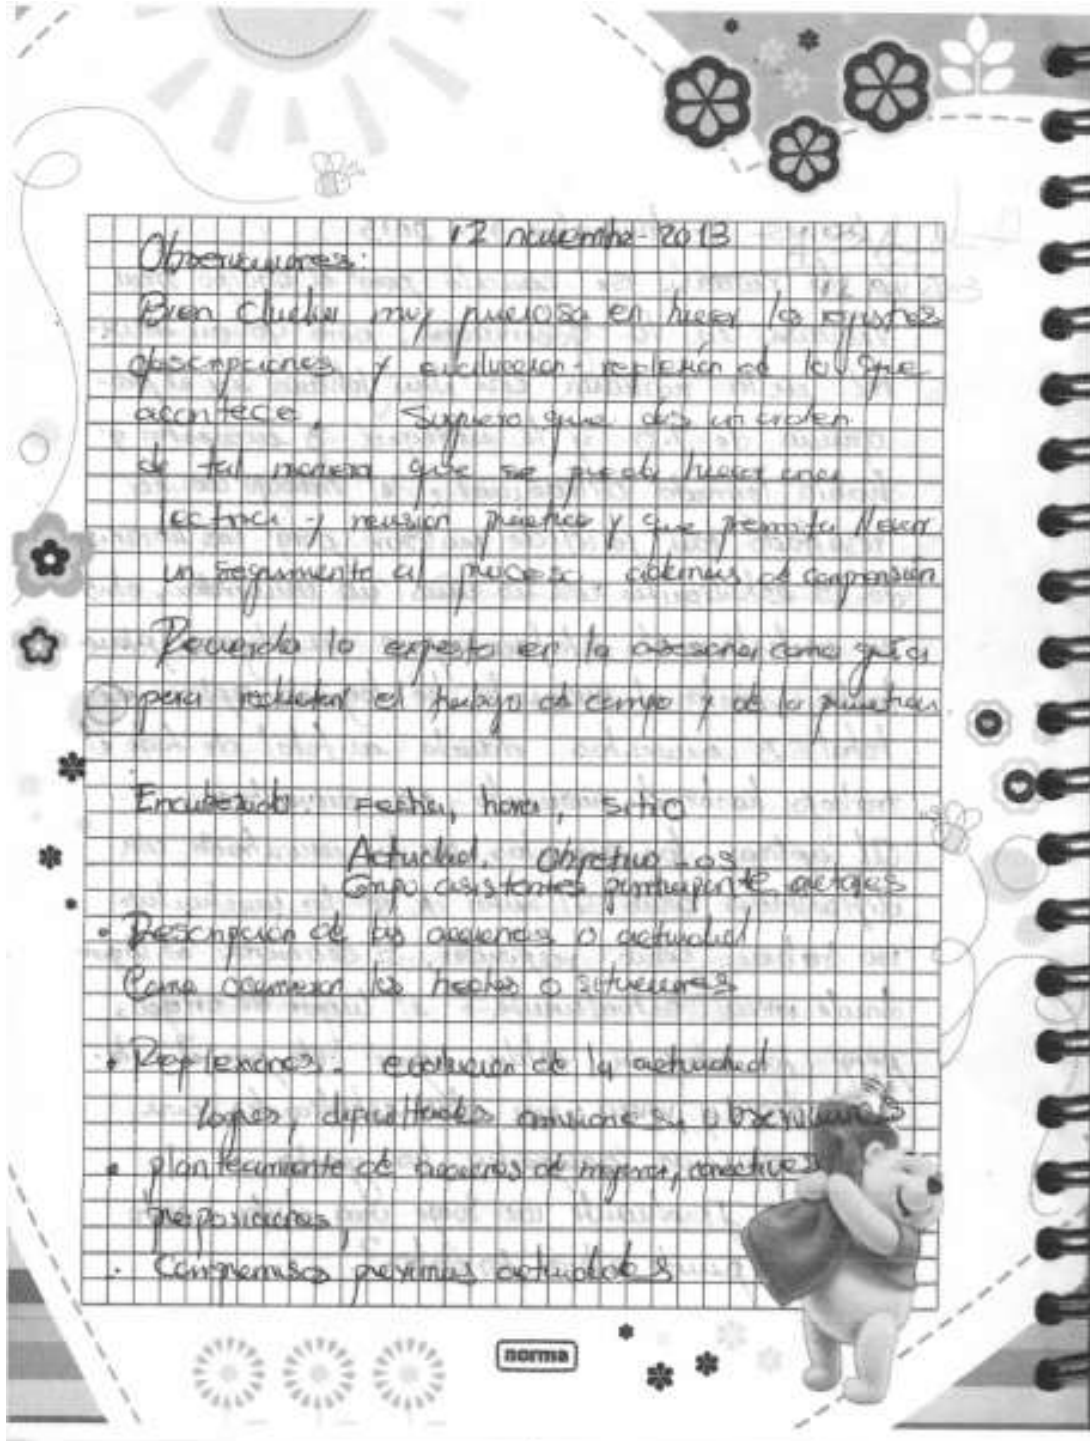 12 noviembre - 2013
Observaciones:
Bien Claudia muy juiciosa en hacer los registros
descripciones y evaluación - reflexión de lo que
acontece, Sugiero que des un orden
de tal manera que se pueda hacer una
lectura y revisión práctica y que permita llevar
un seguimiento al proceso, además de comprensión
Recuerda lo expuesto en la asesoría como guía
para redactar el trabajo de campo y de la práctica.
Encabezado: Fecha, hora, sitio
Actividad, Objetivo - os
Grupo asistentes participante, actores
• Descripción de las acciones o actividad
Como ocurrieron los hechos o situaciones
• Reflexiones. evaluación de la actividad
logros, dificultades, observaciones
• planteamiento de acciones de mejora, correctivos
proposiciones,
. Compromisos próximas actividades
norma